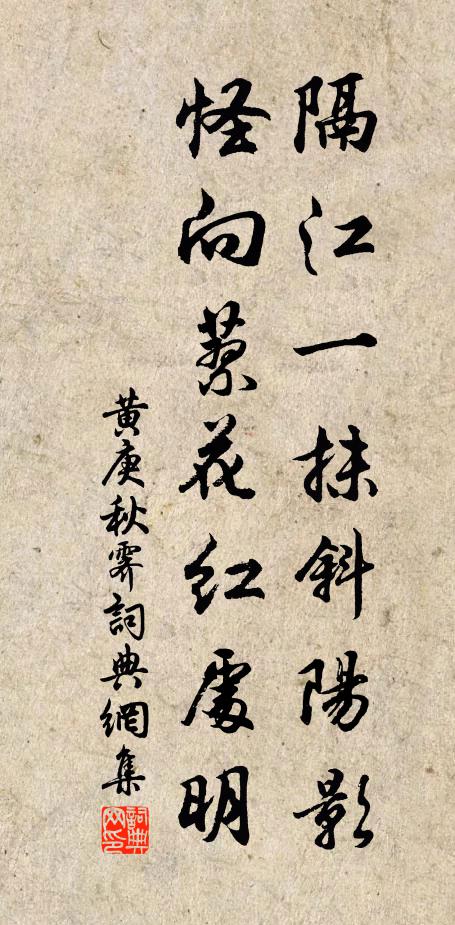 隔江一抹斜陽影
怪向蓼花紅處明
黃庚秋霽詞典網集
詞典網印